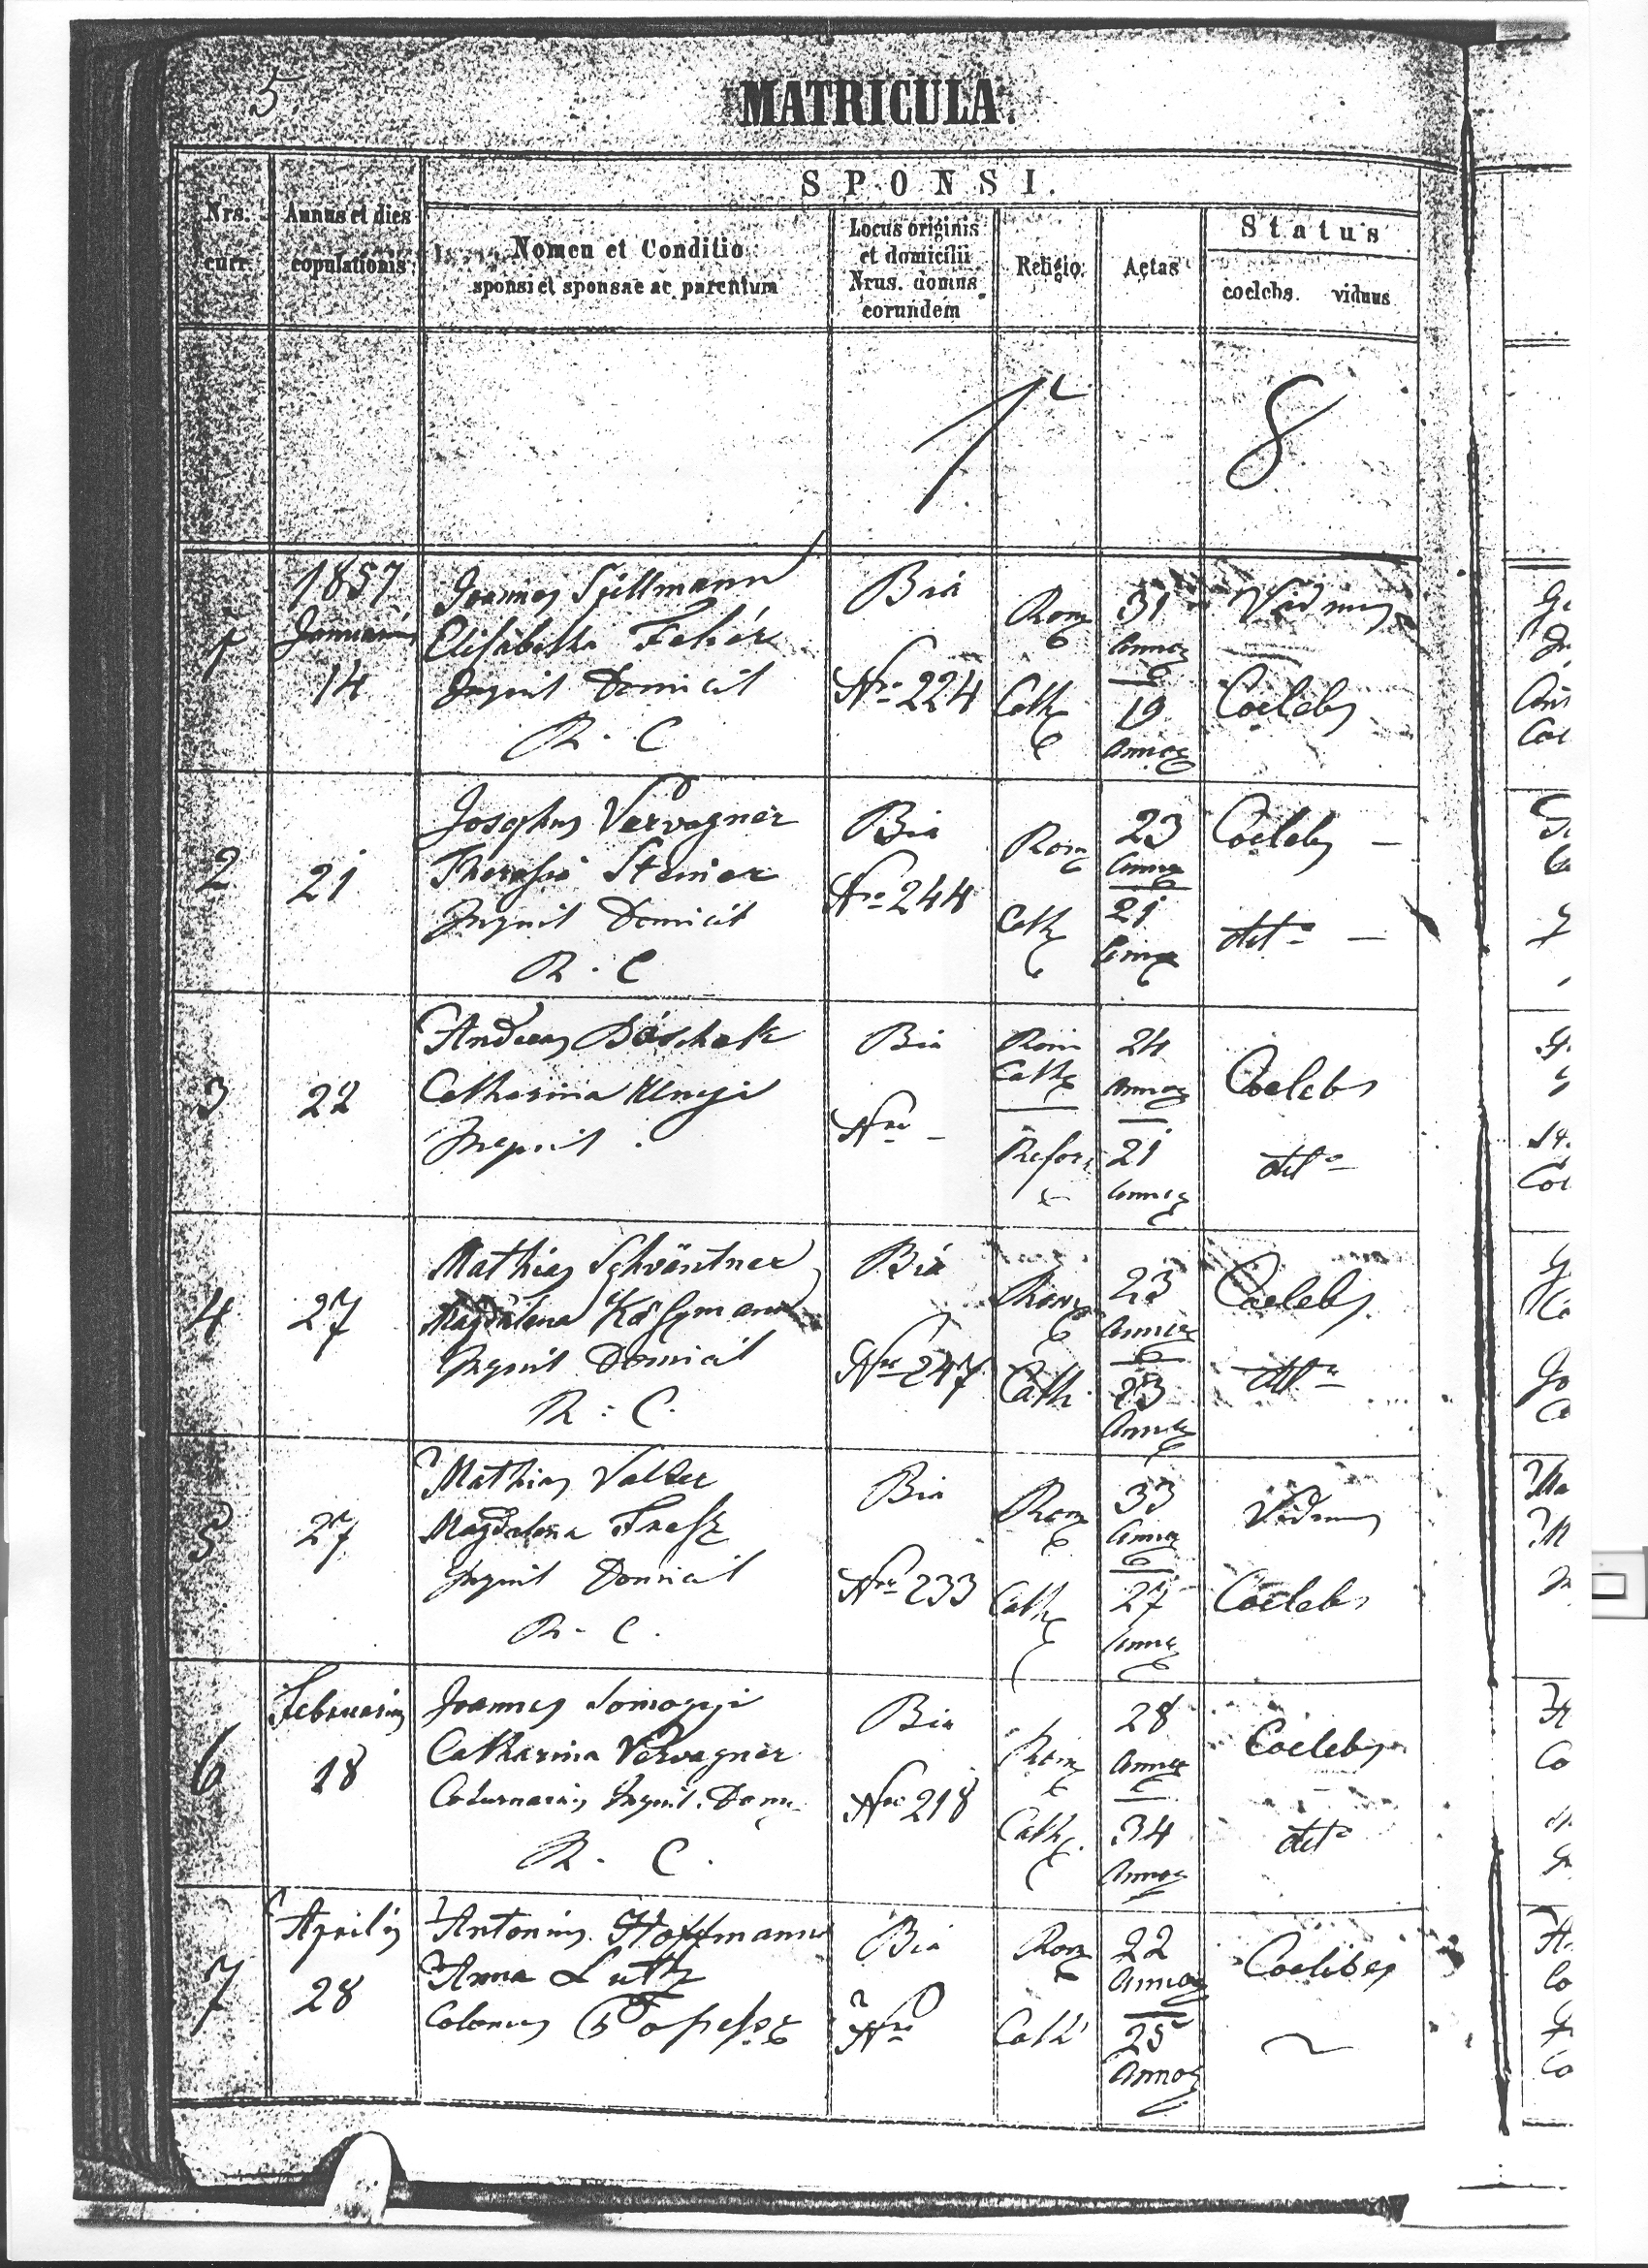 5
MATRICULA.
SPONSI.
Nrs. curr.
Annus et dies copulationis
Nomen et Conditio
sponsi et sponsae ac parentum
Locus originis
et domicilii
Nrus. domus
eorundem
Religio
Aetas
Status
coelebs. viduus
8
1857
Januarius
14
Joannes Spillmann
Elisabetha Fehér
Inquil Domicil
R. C
Bia
Nro 224
Rom
Cath
31
Annor
19
Annor
Viduus
Coelebs
2
21
Josephus Vervagner
Theresia Steiner
Inquil Domicil
R. C
Bia
Nro 244
Rom
Cath
23
Annor
21
Annor
Coelebs –
detto –
3
22
Andreas
Catharina
Inquil
Bia
Nro –
Rom
Cath
Refor
24
Annor
21
Annor
Coelebs
detto
4
27
Mathias Schvántner
Magdalena
Inquil Domicil
R : C.
Bia
Nro 247
Rom
Cath
23
Annor
23
Annor
Coelebs
detto
5
27
Mathias Valter
Magdalena
Inquil Domicil
R. C.
Bia
Nro 233
Rom
Cath
33
Annor
27
Annor
Viduus
Coelebs
6
Februarius
18
Joannes Somogyi
Catharina Vervagner
Coturnarius Inquil. Dom.
R. C.
Bia
Nro 218
Rom
Cath
28
Annor
34
Annor
Coelebs
detto
7
Aprilis
28
Antonius Hoffmann
Anna Lutz
Colonus
Bia
Nro
Rom
Cath
22
Annor
25
Annor
Coelibes